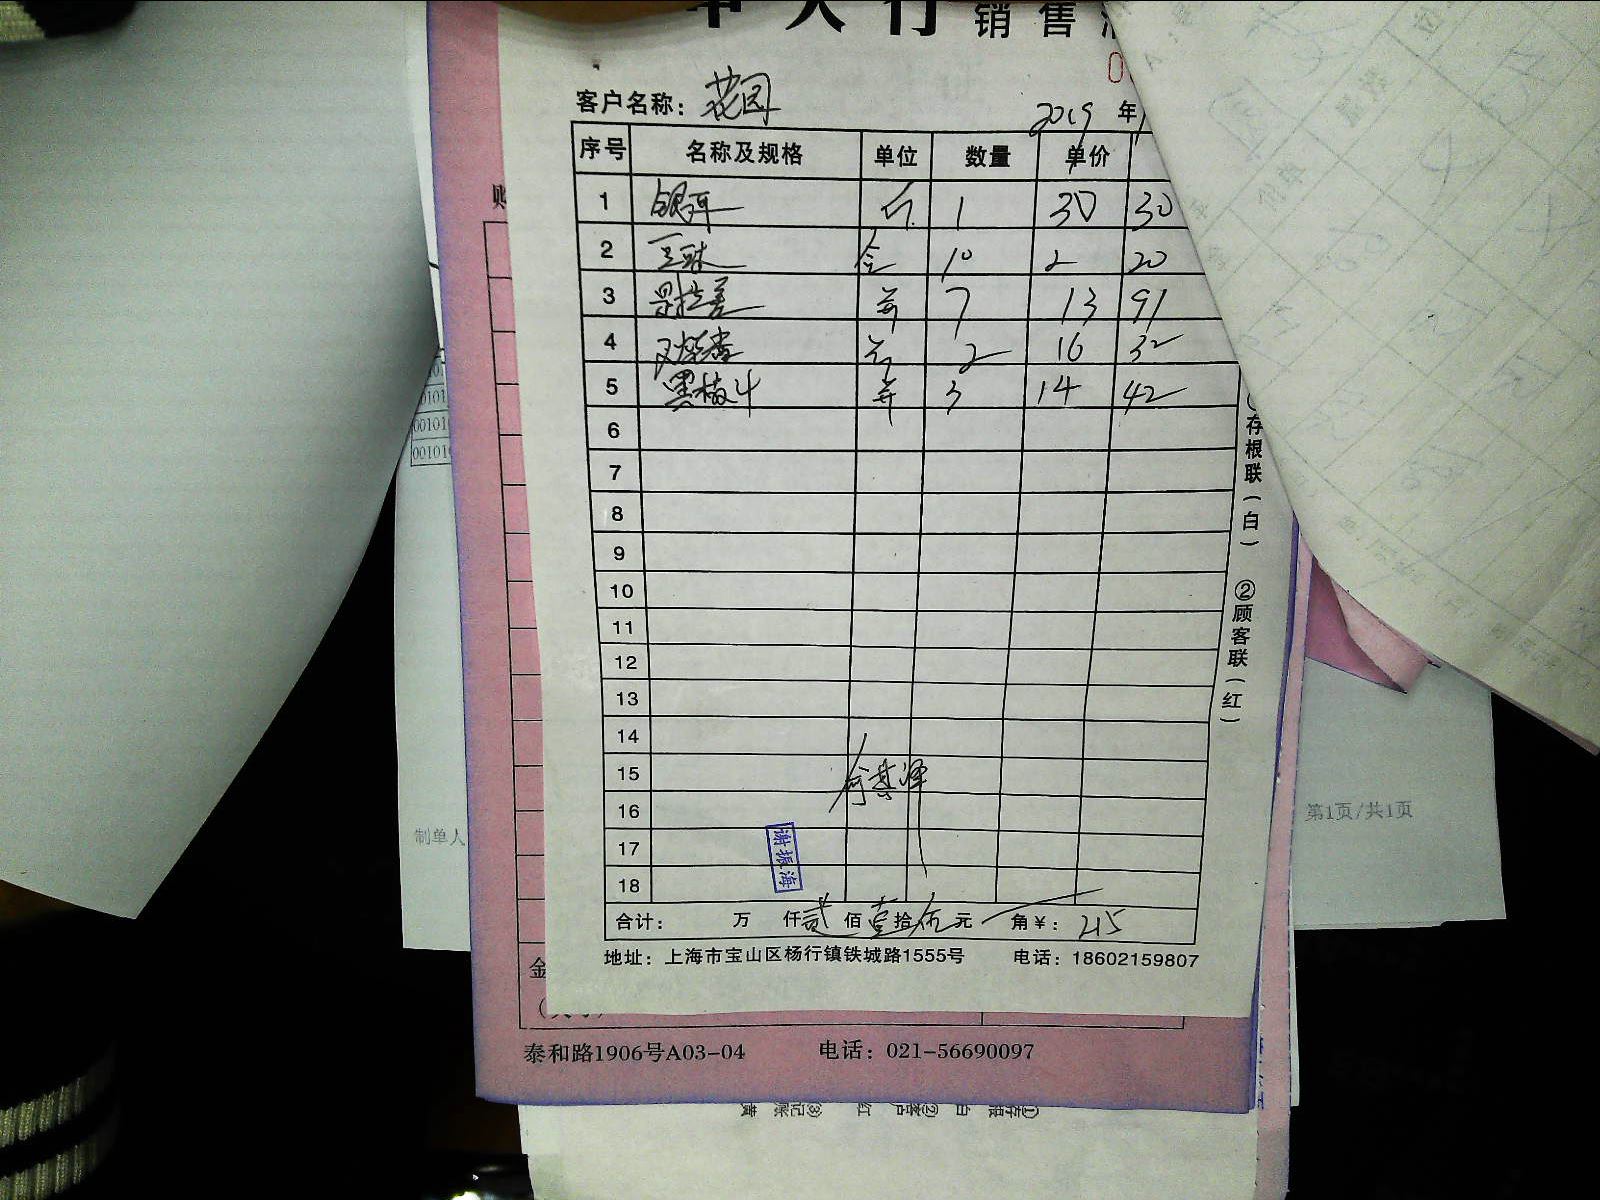 销售
客户名称：花园 2019年
序号 名称及规格 单位 数量 单价
1 银耳 斤 1 30 30
2 豆豉 盒 10 2 20
3 是拉差 并 7 13 91
4 叉烧酱 并 2 16 32
5 黑椒汁 并 3 14 42
6
7
8
9
10
11
12
13
14
15
16
17
18
谢振海
合计： 万 仟贰佰壹拾伍元 角￥：215
地址：上海市宝山区杨行镇铁城路1555号 电话：18602159807
存根联（白） ②顾客联（红）
制单人
第1页/共1页
泰和路1906号A03-04 电话：021-56690097